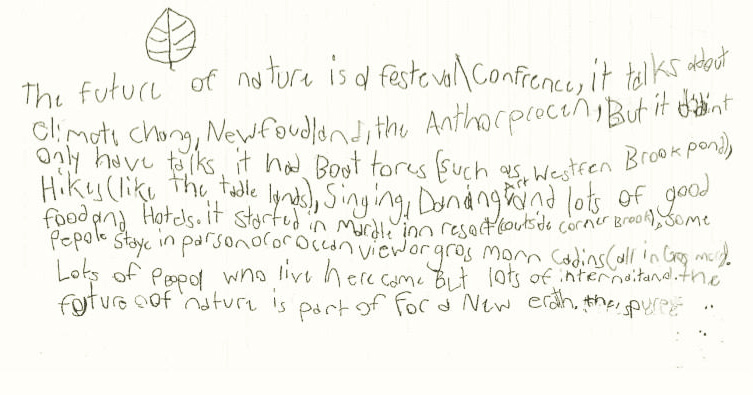 The future of nature is a festeval\Confrence, it talks about
Climate chang, Newfoudland, the Anthorprocen, But it didint
only have talks it had Boat tores (such as Westren Brook pond),
Hikes (like The table lands), Singing, Dancing, Art and lots of good
food and Hotels. it started in Mardle inn resort (outside corner Brook), some
Pepole staye in parson or or occan view or gros morn Cadins (all in Gros morn).
Lots of Peopol who live here came But lots of internaitanal. the
future oof nature is part of For a New erath. the